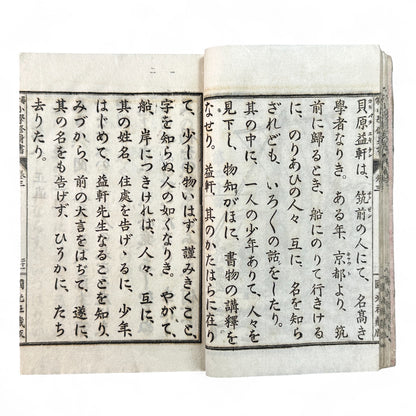 貝原益軒は、筑前の人にて、名高き
學者なりき。ある年、京都より、筑
前に歸るとき、船にのりて行きける
に、のりあひの人々、互に、名を知ら
ざれども、いろ〱の話をしたり。
其の中に、一人の少年ありて、人々を
見下し、物知がほに、書物の講釋を
なせり。益軒、其のかたはらに在り
て、少しも物いはず、謹みきくこと、
字を知らぬ人の如くなりき。やがて、
船、岸につきければ、人々、互に、
其の姓名、住處を告げゝるに、少年、
はじめて、益軒先生なることを知り、
みづから、前の大言をはぢて、遂に、
其の名をも告げず、ひそかに、たち
去りたり。
卷三
國光社藏版